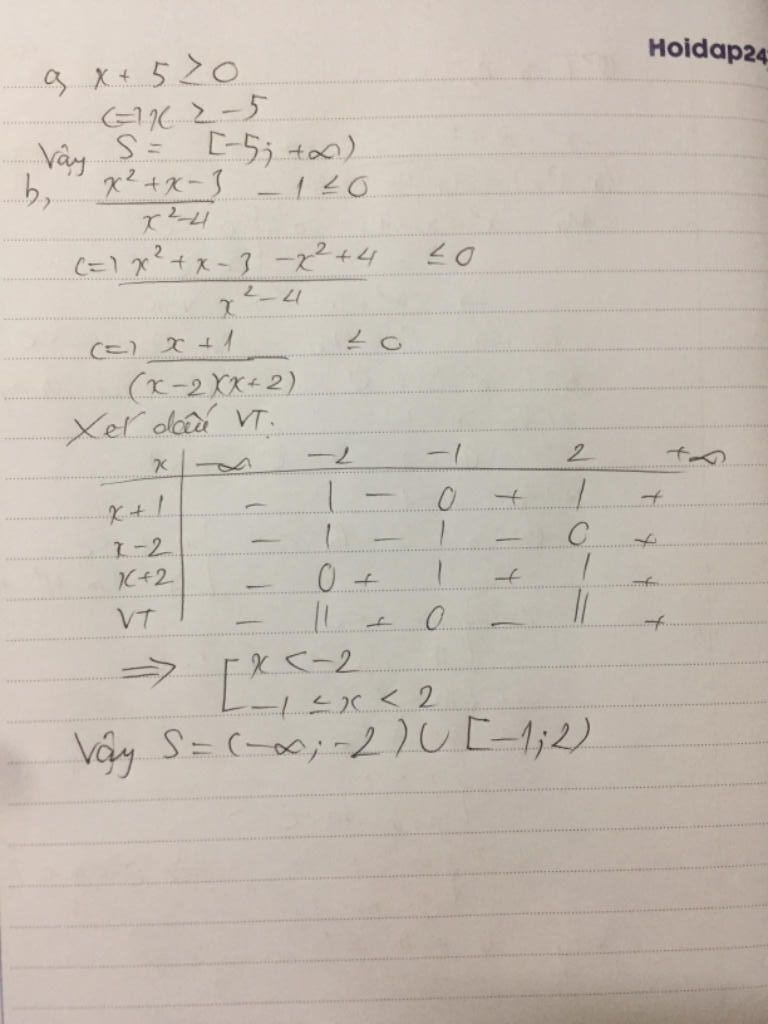 Hoidap24
a, x + 5 ≥ 0
<=> x ≥ -5
Vậy S = [-5; +∞)
b, (x² + x - 3)/(x² - 4) - 1 ≤ 0
<=> (x² + x - 3 - x² + 4)/(x² - 4) ≤ 0
<=> (x + 1)/((x - 2)(x + 2)) ≤ 0
Xét dấu VT.
x | -∞ -2 -1 2 +∞
x + 1 | - | - 0 + | +
x - 2 | - | - | - 0 +
x + 2 | - 0 + | + | +
VT | - || + 0 - || +
=> [ x < -2
-1 ≤ x < 2
Vậy S = (-∞; -2) ∪ [-1; 2)